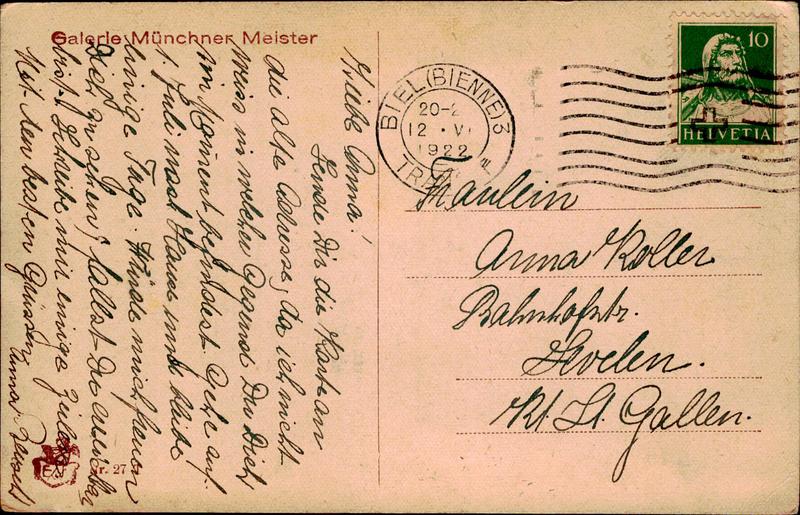 Galerie Münchner Meister
Liebe Anna!
Sende Dir die Karte an
die alte Adresse, da ich nicht
weiss in welcher Gegend Du Dich
im Moment befindest. Gehe auf
1. Juli nach Hause und bleibe
einige Tage. Würde mich freuen
Dich zu sehen, falls Du
bist. Schreibe mir einige Zeilen
Mit den besten Grüssen
Anna
Nr. 27
BIEL (BIENNE) 3
20-2
12 · VI
1922
10
HELVETIA
Fräulein
Anna Koller
Bahnhofstr.
Sevelen.
Kt. St. Gallen.